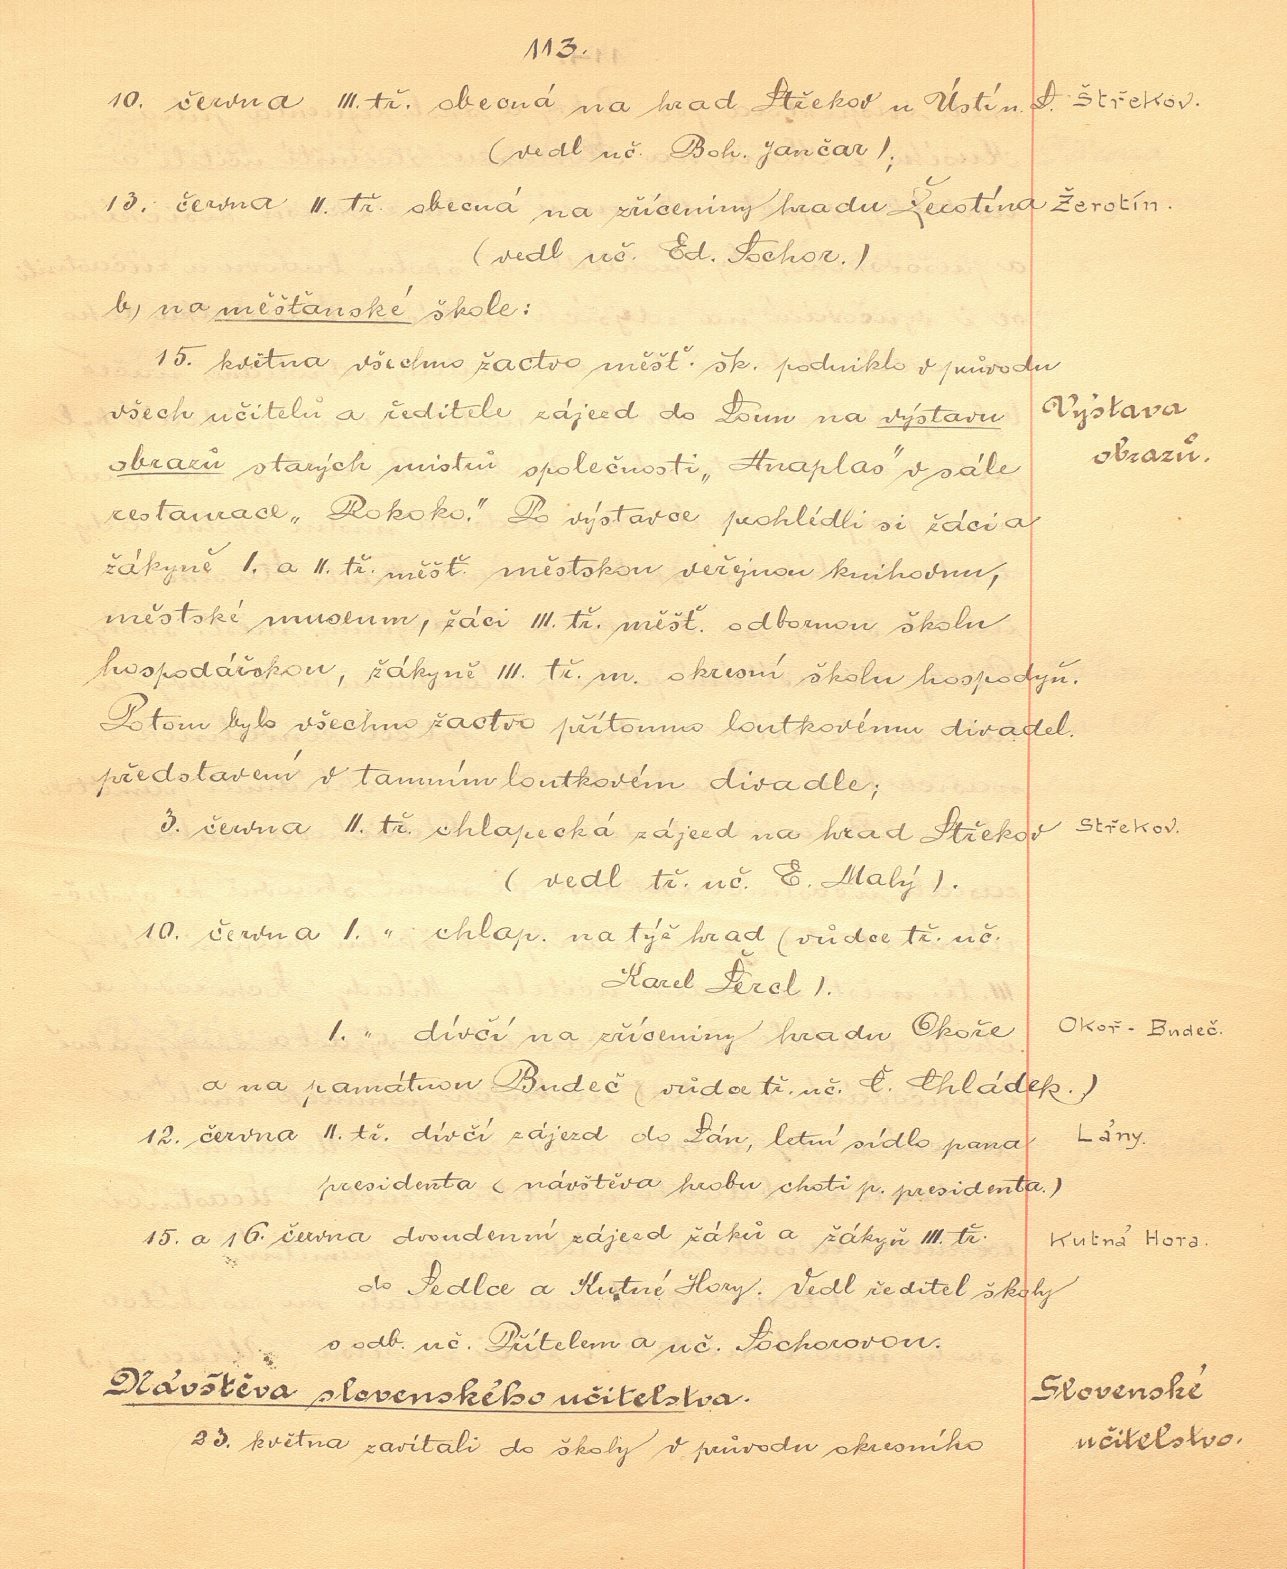 113.
10. června III. tř. obecná na hrad Střekov u Ústí n. L. Střekov.
(vedl uč. Boh. Jančar);
13. června II. tř. obecná na zříceniny hradu Žerotína Žerotín.
(vedl uč. Ed. Sochor.)
b) na měšťanské škole:
15. května všechno žactvo měšť. šk. podniklo v průvodu
všech učitelů a ředitele zájezd do Loun na výstavu Výstava
obrazů starých mistrů společnosti „Anaplas" v sále obrazů.
restaurace „Rokoko." Po výstavce prohlédli si žáci a
žákyně I. a II. tř. měšť. městskou veřejnou knihovnu,
městské museum, žáci III. tř. měšť. odbornou školu
hospodářskou, žákyně III. tř. m. okresní školu hospodyň.
Potom bylo všechno žactvo přítomno loutkovému divadel.
představení v tamním loutkovém divadle;
3. června II. tř. chlapecká zájezd na hrad Střekov Střekov.
(vedl tř. uč. E. Malý).
10. června I. " chlap. na týž hrad (vůdce tř. uč.
Karel Šercl).
I. " dívčí na zříceniny hradu Okoře Okoř - Budeč.
a na památnou Budeč (vůdce tř. uč. Č. Chládek.)
12. června II. tř. dívčí zájezd do Lán, letní sídlo pana Lány.
presidenta (návštěva hrobu choti p. presidenta.)
15. a 16. června dvoudenní zájezd žáků a žákyň III. tř. Kutná Hora.
do Sedlce a Kutné Hory. Vedl ředitel školy
s odb. uč. Přítelem a uč. Sochorovou.
Návštěva slovenského učitelstva. Slovenské
23. května zavítali do školy v průvodu okresního učitelstvo.